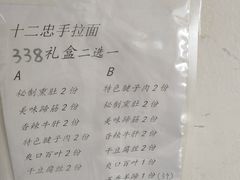 十二忠手拉面
338礼盒二选一
A
B
秘制卖肚2份
特色腱子肉2份
美味蹄筋2份
秘制卖肚2份
香辣牛肚2份
美味蹄筋2份
特色腱子肉2份
香辣牛肝2份
爽口百叶2份
干豆腐丝2份
干豆腐丝2份
爽口百叶1份